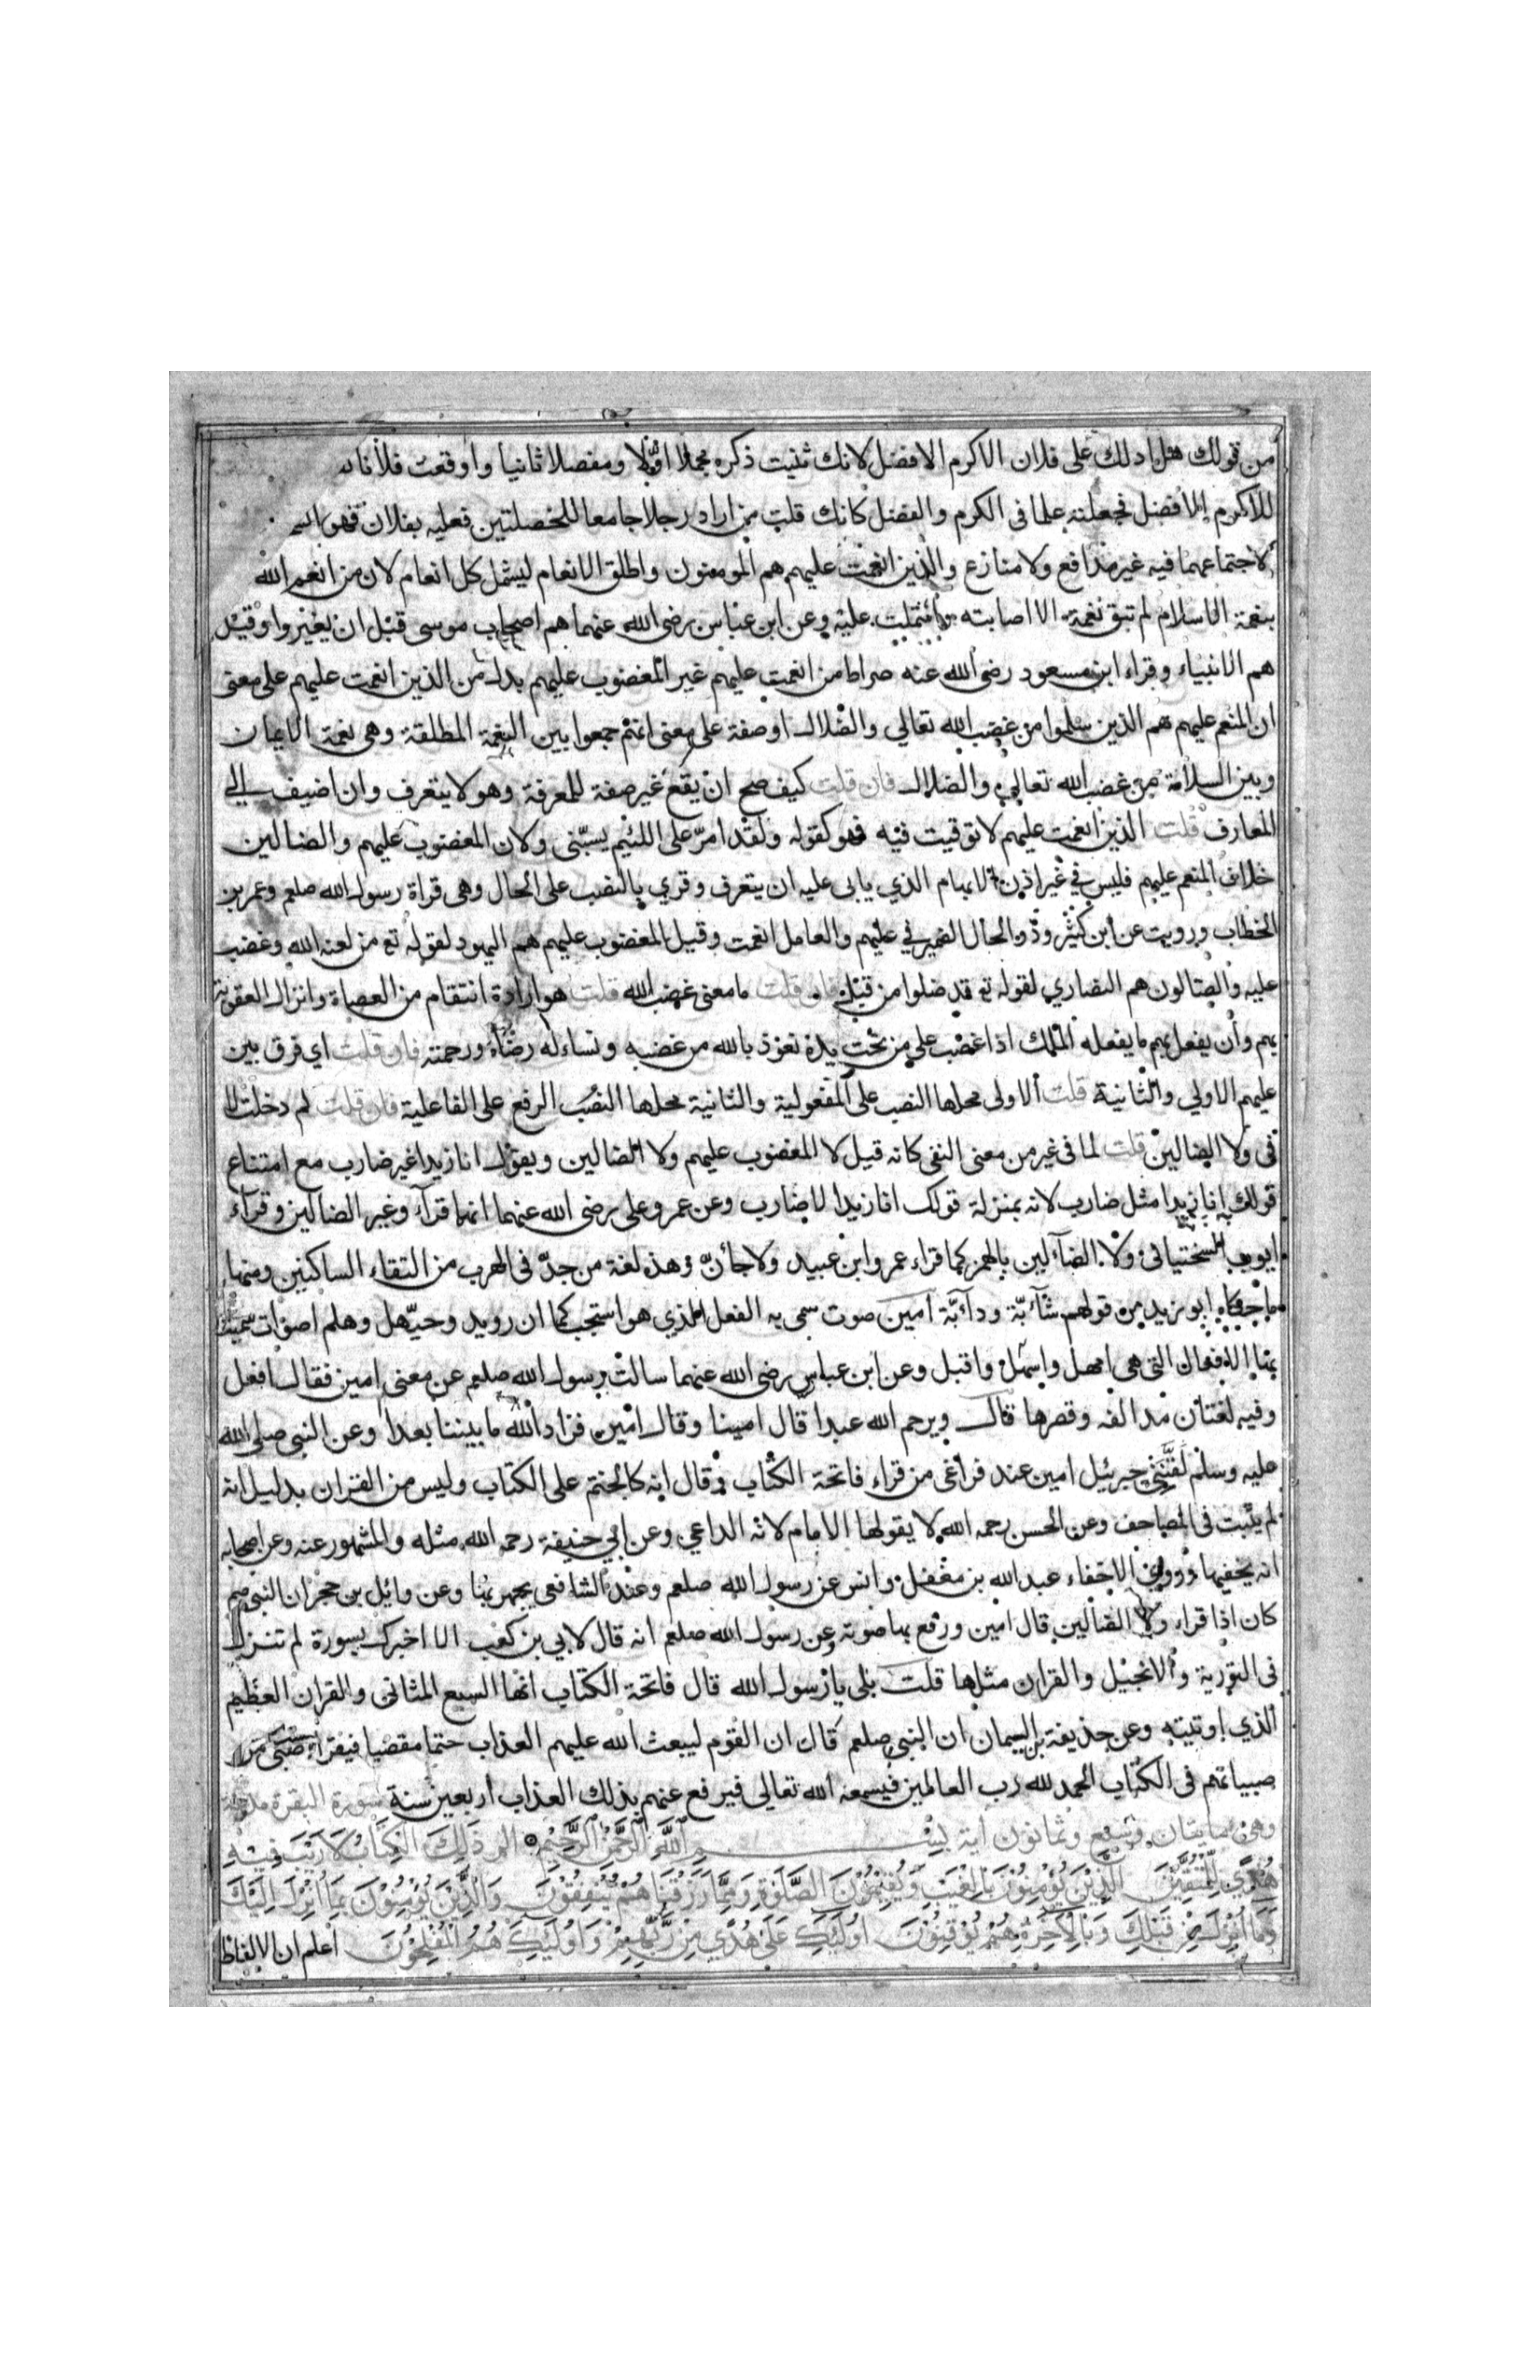 من قولك هل ادلك على فلان الاكرم الافضل لانك ثنيت ذكره مجملا اولا ومفصلا ثانيا واوقعت فلانا
للاكرم الافضل فجعلته علما فى الكرم والفضل كانك قلت من اراد رجلا جامعا للخصلتين فعليه بفلان فهو
لاجتماعهما فيه غير مدافع ولا منازع والذين انعمت عليهم هم المومنون واطلق الانعام ليشمل كل انعام لان من انعم الله
بنعمة الاسلام لم تبق نعمة الا اصابته واشتملت عليه وعن ابن عباس رضى الله عنهما هم اصحاب موسى قبل ان يغيروا وقيل
هم الانبياء وقراء ابن مسعود رضى الله عنه صراط من انعمت عليهم غير المغضوب عليهم بدل من الذين انعمت عليهم على معنى
ان المنعم عليهم هم الذين سلموا من غضب الله تعالي والضلال او صفة على معنى انهم جمعوا بين النعمة المطلقة وهى نعمة الايمان
وبين السلامة من غضب الله تعالى والضلال فان قلت كيف صح ان يقع غير صفة للمعرفة وهو لا يتعرف وان اضيف الي
المعارف قلت الذين انعمت عليهم لا توقيت فيه فهو كقوله ولقد امرّ على اللئيم يسبّنى ولان المغضوب عليهم والضالين
خلاف المنعم عليهم فليس في غير اذن الابهام الذي يابى عليه ان يتعرف وقري بالنصب على الحال وهى قراة رسول الله صلعم وعمر بن
الخطاب ورويت عن ابن كثير وذو الحال الضمير في عليهم والعامل انعمت وقيل المغضوب عليهم هم اليهود لقوله تع من لعنه الله وغضب
عليه والضالون هم النصاري لقوله تع قد ضلوا من قبل فان قلت ما معنى غضب الله قلت هو ارادة انتقام من العصاة وانزال العقوبة
بهم وأن يفعل بهم ما يفعله الملك اذا غضب على من تحت يده نعوذ بالله من غضبه ونساله رضاه ورحمته فان قلت اي فرق بين
عليهم الاولي والثانية قلت الاولى محلها النصب على المفعولية والثانية محلها الرفع على الفاعلية فان قلت لم دخلت لا
فى ولا الضالين قلت لما فى غير من معنى النفى كانه قيل لا المغضوب عليهم ولا الضالين ويقول انا زيدا غير ضارب مع امتناع
قولك انا زيدا مثل ضارب لانه بمنزلة قولك انا زيدا لا ضارب وعن عمر وعلى رضى الله عنهما انهما قرآ وغير الضالين وقرآء
ايوب السختيانى ولا الضألين بالهمز كما قراء عمرو ابن عبيد ولا جأنّ وهذه لغة من جدّ فى الهرب من التقاء الساكنين ومنها
ما حكاه ابو زيد من قولهم شأبّة ودأبّة آمين صوت سمى به الفعل الذي هو استجب كما ان رويد وحيّهل وهلم اصوات سميت
بها الافعال التى هى امهل واسرع واقبل وعن ابن عباس رضى الله عنهما سالت رسول الله صلعم عن معنى امين فقال افعل
وفيه لغتان مد الفه وقصرها قال ويرحم الله عبدا قال امينا وقال امين فزاد الله ما بيننا بعدا وعن النبى صلى الله
عليه وسلم لقّننى جبرئيل امين عند فراغى من قراء فاتحة الكتاب وقال انه كالختم على الكتاب وليس من القران بدليل انه
لم يثبت فى المصاحف وعن الحسن رحمه الله لا يقولها الامام لانه الداعي وعن ابي حنيفة رحمه الله مثله والمشهور عنه وعن اصحابه
انه يخفيها وروي الاخفاء عبدالله بن مغفل وانس عن رسول الله صلعم وعند الشافعى يجهر بها وعن وائل بن حجر ان النبى صم
كان اذا قراء ولا الضالين قال امين ورفع بها صوته وعن رسول الله صلعم انه قال لابي بن كعب الا اخبرك بسورة لم تنزل
فى التورية والانجيل والقران مثلها قلت بلى يا رسول الله قال فاتحة الكتاب انها السبع المثانى والقران العظيم
الذي اوتيته وعن حذيفة بن اليمان ان النبى صلعم قال ان القوم ليبعث الله عليهم العذاب حتما مقضيا فيقراء صبى من
صبيانهم فى الكتاب الحمد لله رب العالمين فيسمعه الله تعالى فيرفع عنهم بذلك العذاب اربعين سنة سورة البقرة مدنية
وهى مايتان وسبع وثمانون آية بِسْمِ اللَّهِ الرَّحْمَنِ الرَّحِيْمِ الم ذَلِكَ الْكِتَابُ لَا رَيْبَ فِيْهِ
هُدًى لِلْمُتَّقِيْنَ الَّذِيْنَ يُؤْمِنُوْنَ بِالْغَيْبِ وَيُقِيْمُوْنَ الصَّلَوةَ وَمِمَّا رَزَقْنَاهُمْ يُنْفِقُوْنَ وَالَّذِيْنَ يُؤْمِنُوْنَ بِمَا اُنْزِلَ اِلَيْكَ
وَمَا اُنْزِلَ مِنْ قَبْلِكَ وَبِالْاَخِرَةِ هُمْ يُوْقِنُوْنَ اُولَئِكَ عَلَى هُدًى مِنْ رَبِّهِمْ وَاُولَئِكَ هُمُ الْمُفْلِحُوْنَ اعلم ان الالفاظ